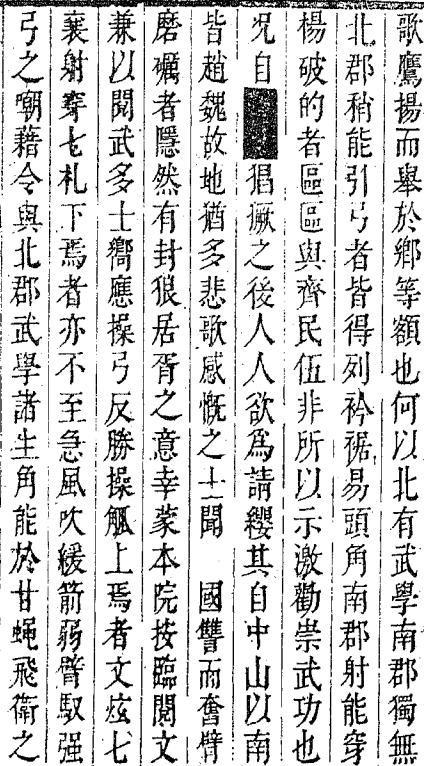 歌鷹揚而舉於鄉等額也何以北有武學南郡獨無
北郡稍能引弓者皆得列衿裾易頭角南郡射能穿
楊破的者區區與齊民伍非所以示激勸崇武功也
况自猖獗之後人人欲爲請纓其自中山以南
皆趙魏故地猶多悲歌感慨之士聞 國讐而奮臂
磨礪者隱然有封狼居胥之意幸蒙本院按臨閱文
兼以閱武多士嚮應操弓反勝操觚上焉者文炫七
襄射穿七札下焉者亦不至急風吹緩箭弱臂馭强
弓之嘲藉令與北郡武學諸生角能於甘蝇飛衛之